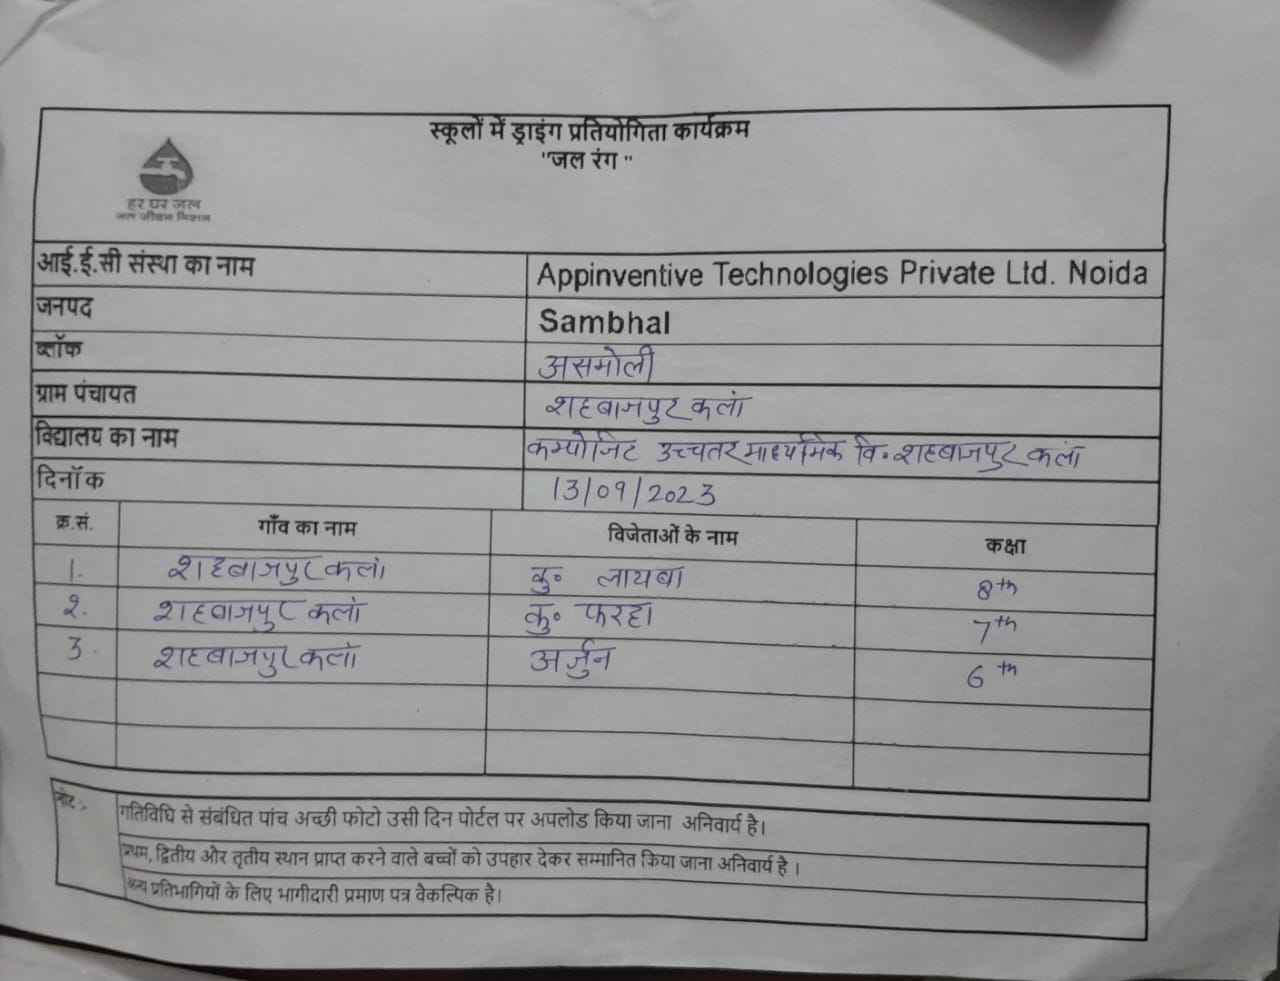 स्कूलों में ड्राइंग प्रतियोगिता कार्यक्रम
"जल रंग "
हर घर जल
जल जीवन मिशन
आई.ई.सी संस्था का नाम Appinventive Technologies Private Ltd. Noida
जनपद Sambhal
ब्लॉक असमोली
ग्राम पंचायत शहबाजपुर कलां
विद्यालय का नाम कम्पोजिट उच्चतर माध्यमिक वि॰ शहबाजपुर कलां
दिनॉक 13/09/2023
क्र.सं. गाँव का नाम विजेताओं के नाम कक्षा
1. शहबाजपुर कलां कु॰ लायबा 8th
2. शहबाजपुर कलां कु॰ फरहा 7th
3. शहबाजपुर कलां अर्जुन 6th
नोट:-
गतिविधि से संबंधित पांच अच्छी फोटो उसी दिन पोर्टल पर अपलोड किया जाना अनिवार्य है।
प्रथम, द्वितीय और तृतीय स्थान प्राप्त करने वाले बच्चों को उपहार देकर सम्मानित किया जाना अनिवार्य है ।
अन्य प्रतिभागियों के लिए भागीदारी प्रमाण पत्र वैकल्पिक है।